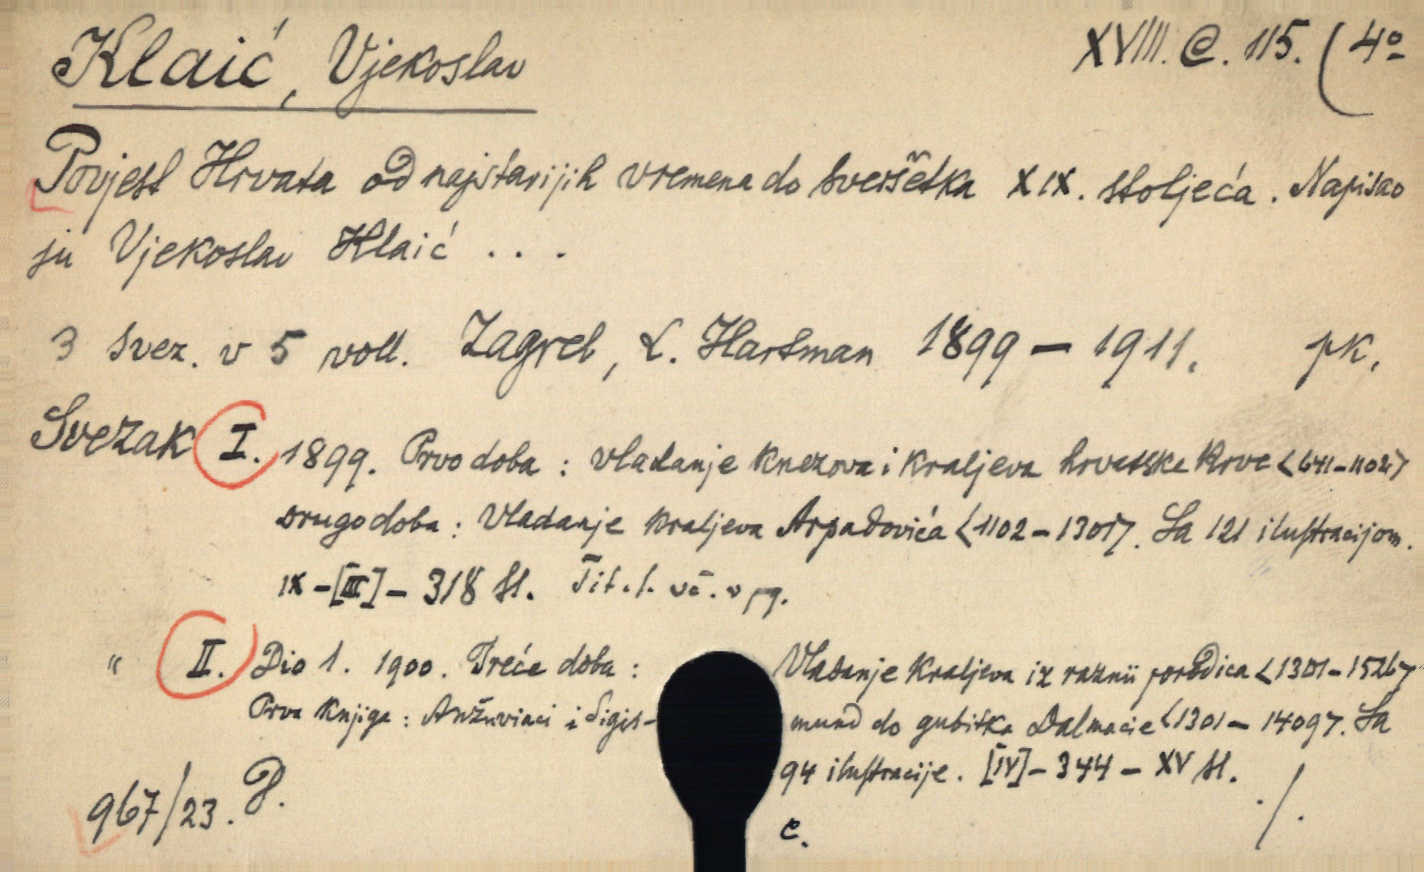 Klaić, Vjekoslav XVIII. C. 115. (4º
Povjest Hrvata od najstarijih vremena do svršetka XIX. stoljeća. Napisao
ju Vjekoslav Klaić ...
3 svez. v 5 voll. Zagreb, L. Hartman 1899 – 1911. pk.
Svezak I. 1899. Prvo doba : vladanje knezova i kraljeva hrvatske krve <641–1102>
Drugo doba : Vladanje kraljeva Arpadovića <1102 – 1301>. Sa 121 ilustracijom.
IX – [III] – 318 st. Tit. l. vč. v pg.
" II. Dio 1. 1900. Treće doba : Vladanje kraljeva iz raznii porodica <1301 – 1526>
Prva knjiga : Anžuvinci i Sigis- mund do gubitka Dalmacie <1301 – 1409>. Sa
94 ilustracije. [IV] – 344 – XV st.
967/23. P. c. ./.